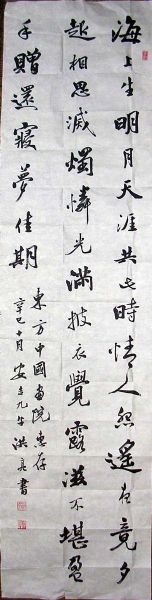 海上生明月天涯共此時情人怨遙夜竟夕
起相思滅燭憐光滿披衣覺露滋不堪盈
手贈還寢夢佳期
東方中國畫院惠存
辛巳十月 洪亮書